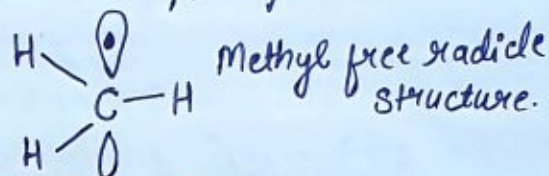 H
Methyl free radicle
C—H
structure.
H